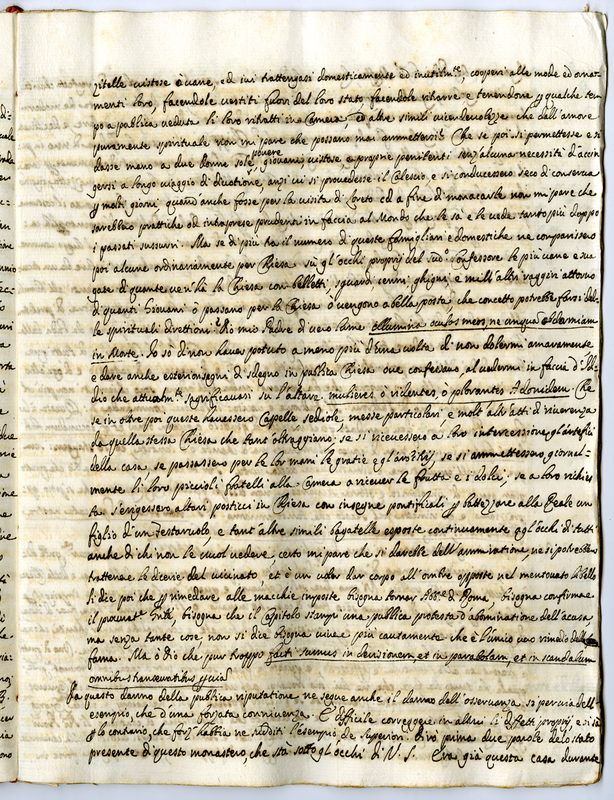 zitelle vistose è vane, ed ivi trattengasi domesticamente ed inutilm.te, cooperi alle mode ed orna-
menti loro, facendole vestiti fuori del loro stato facendole ritrarre e tenendone p qualche tem
po a publica veduta li loro ritratti in Camera, ed altre simili
puramente spirituale non mi pare che possano mai ammettersi? Che se poi si permettesse e si
dasse mano a due donne sole povere giovani vistose e proprie penitenti senz'alcuna necessità d'accin
gersi a longo viaggio di divotione, anzi vi si provedesse il Calesio e si conducessero seco di conserva
p molti giorni, quand'anche fosse per la visita di Loreto ed a fine di monacarsle non mi pare che
sarebbero prattiche od intraprese prudenti in faccia al Mondo che le sà e le vede tanto più doppo
i passati sussurri. Ma se di più tra il numero di queste famigliari è domestiche ne comparissero
poi alcune ordinariamente per Chiesa sù gl'occhi proprij del suo Confessore le più vane e sua
gate di quante ve n'hà la Chiesa con belletti, sguardi, cenni, ghigni, e mill'altri raggiri attorno
di quanti Giovani ò passano per la Chiesa ò vengono a bella posta che concetto potrebbe farsi del-
le spirituali direttioni? Ah mio Padre di vero lume illumina oculos meos, ne unquam obdormiam
in Morte. Io sò di non haver potuto a meno più d'una volta di non dolermi amaramente
e dare anche esteriori segni di sdegno in publica Chiesa ove confessavo, al vedermi in faccia d'Id-
dio che attualm.te sagrificavasi su l'altare mulieres, ò ridentes, ò plorantes Adonidem. Che
se in oltre poi queste havessero Capelle sediole, messe particolari, e molt'altri atti di riverenza
da quella stessa Chiesa che tant'oltraggiano; se si ricevessero a loro intercessione gl'artefici
della casa se passassero per le lor mani le gratie e gl', se si ammettessero giornal-
mente li loro piccioli fratelli alla Camera a ricever le frutta e i dolci, se a loro richies
ta s'erigessero altari posticci in Chiesa con insegne pontificali p battezzare alla Reale un
figlio d'un e tant'altre simili bagatelle esposte continuamente a gl'occhi di tutti
anche di chi non le vuol vedere, certo mi pare che si darebbe dell'ammiratione, ne si potrebbero
trattenere le dicerie del vicinato, et è un voler dar corpo all'ombre opposte nel mentovato libello
si dice poi che p rimediare alle macchie imposte bisogna tornar Abb.e di Roma, bisogna confirmare
il, bisogna che il Capitolo stampi una publica protesta d'abominatione dell'acusa,
ma senza tante cose non si dice bisogna viver più cautamente che è l'unico vero rimedio della
fama. Ma ò Dio che pur troppo facti sumus in derisionem, et in parabolam, et in scandalum
omnibus transeuntibus p viam
Da questo danno della publica riputatione ne segue anche il danno dell'osservanza si per via dell'
esempio, che d'una forzata connivenza. È difficile correggere in altrui li diffetti proprij, e si sà
p lo contrario, che forz'habbia ne sudditi l'esempio de Superiori. Dirò prima due parole dello stato
presente di questo monastero, che stà sotto gl'occhi di V. S. Era già questa casa durante